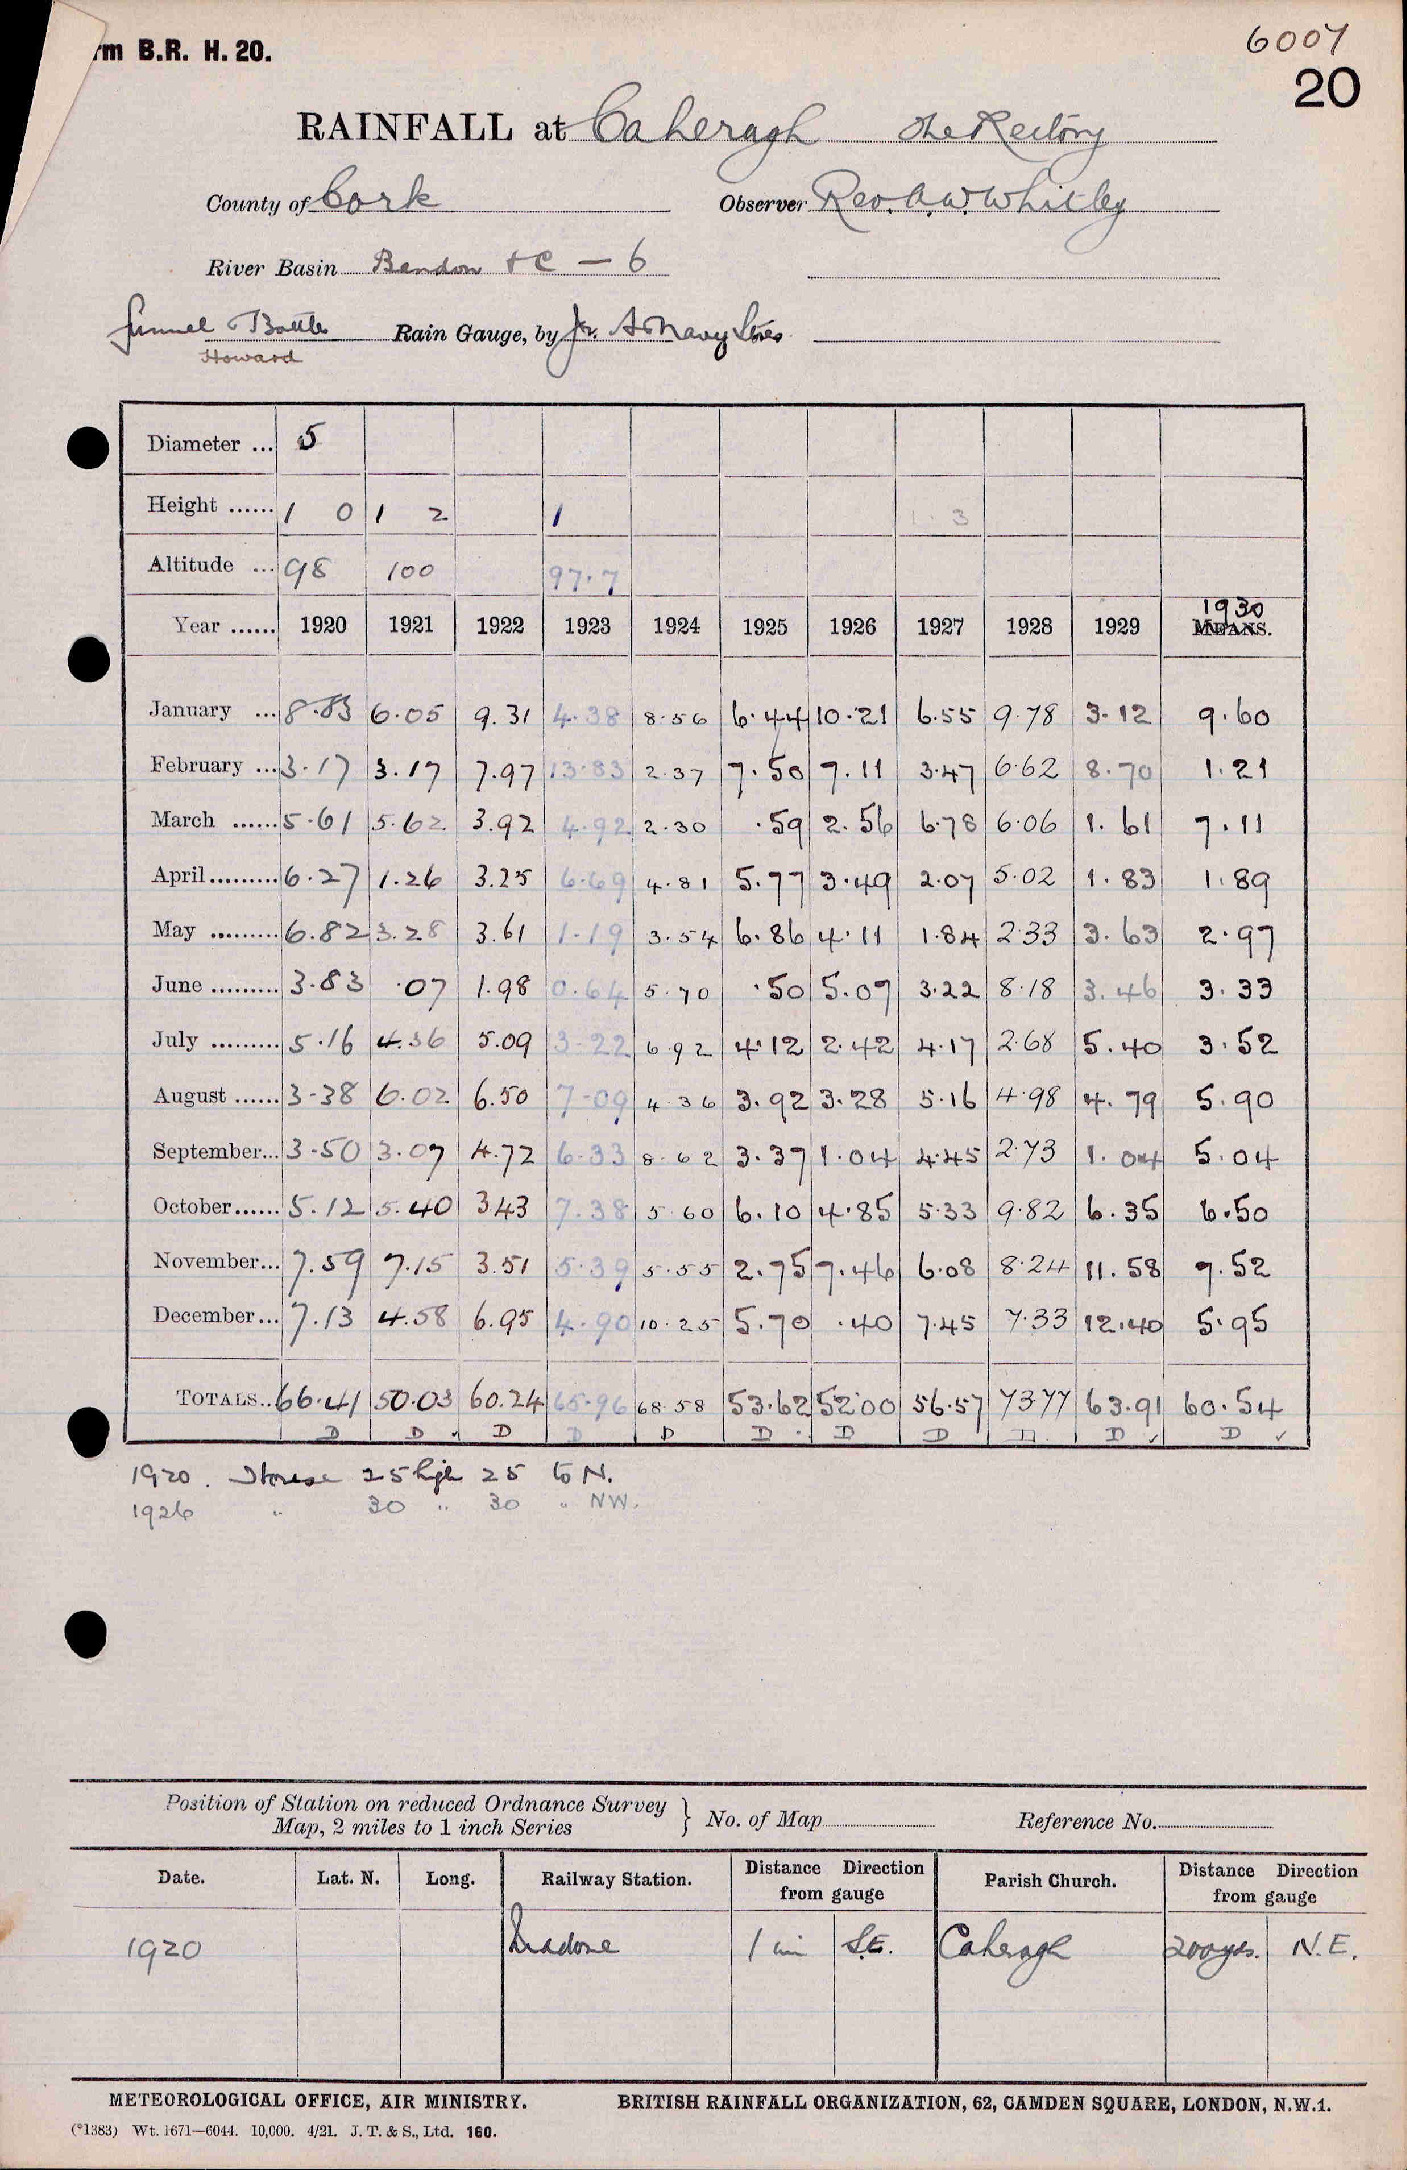 rm B.R. H. 20.
6007
20
RAINFALL at Caheragh The Rectory
County of Cork Observer Rev. A. W. Whitley
River Basin Bandon &c — 6
Funnel & Bottle Rain Gauge, by Jr. A & Navy Stores
Howard
Diameter ... 5
Height ...... 1 0 1 2 1 1 3
Altitude ... 98 100 97.7
1930
Year ...... 1920 1921 1922 1923 1924 1925 1926 1927 1928 1929 MEANS.
January ... 8.83 6.05 9.31 4.38 8.56 6.44 10.21 6.55 9.78 3.12 9.60
February ... 3.17 3.17 7.97 13.83 2.37 7.50 7.11 3.47 6.62 8.70 1.21
March ...... 5.61 5.62 3.92 4.92 2.30 .59 2.56 6.78 6.06 1.61 7.11
April ......... 6.27 1.26 3.25 6.69 4.81 5.77 3.49 2.07 5.02 1.83 1.89
May ......... 6.82 3.28 3.61 1.19 3.54 6.86 4.11 1.84 2.33 3.63 2.97
June ......... 3.83 .07 1.98 0.64 5.70 .50 5.07 3.22 8.18 3.46 3.33
July ......... 5.16 4.36 5.09 3.22 6 92 4.12 2.42 4.17 2.68 5.40 3.52
August ...... 3.38 6.02 6.50 7.09 4 36 3.92 3.28 5.16 4.98 4.79 5.90
September... 3.50 3.07 4.72 6.33 8.62 3.37 1.04 4.45 2.73 1.04 5.04
October...... 5.12 5.40 3.43 7.38 5 60 6.10 4.85 5.33 9.82 6.35 6.50
November... 7.59 7.15 3.51 5.39 5.55 2.75 7.46 6.08 8.24 11.58 7.52
December... 7.13 4.58 6.95 4.90 10.25 5.70 .40 7.45 7.33 12.40 5.95
TOTALS.. 66.41 50.03 60.24 65.96 68.58 53.62 52.00 56.57 73.77 63.91 60.54
D D D D D D D D D D D
1920. House 25 high 25 to N.
1926 " 30 " 30 " NW.
Position of Station on reduced Ordnance Survey
Map, 2 miles to 1 inch Series } No. of Map Reference No.
Date. Lat. N. Long. Railway Station. Distance Direction from gauge Parish Church. Distance Direction from gauge
1920 1 mi S.E. Caheragh 200 yds. N.E.
METEOROLOGICAL OFFICE, AIR MINISTRY. BRITISH RAINFALL ORGANIZATION, 62, CAMDEN SQUARE, LONDON, N.W.1.
(*1383) Wt. 1671—6044. 10,000. 4/21. J. T. & S., Ltd. 160.